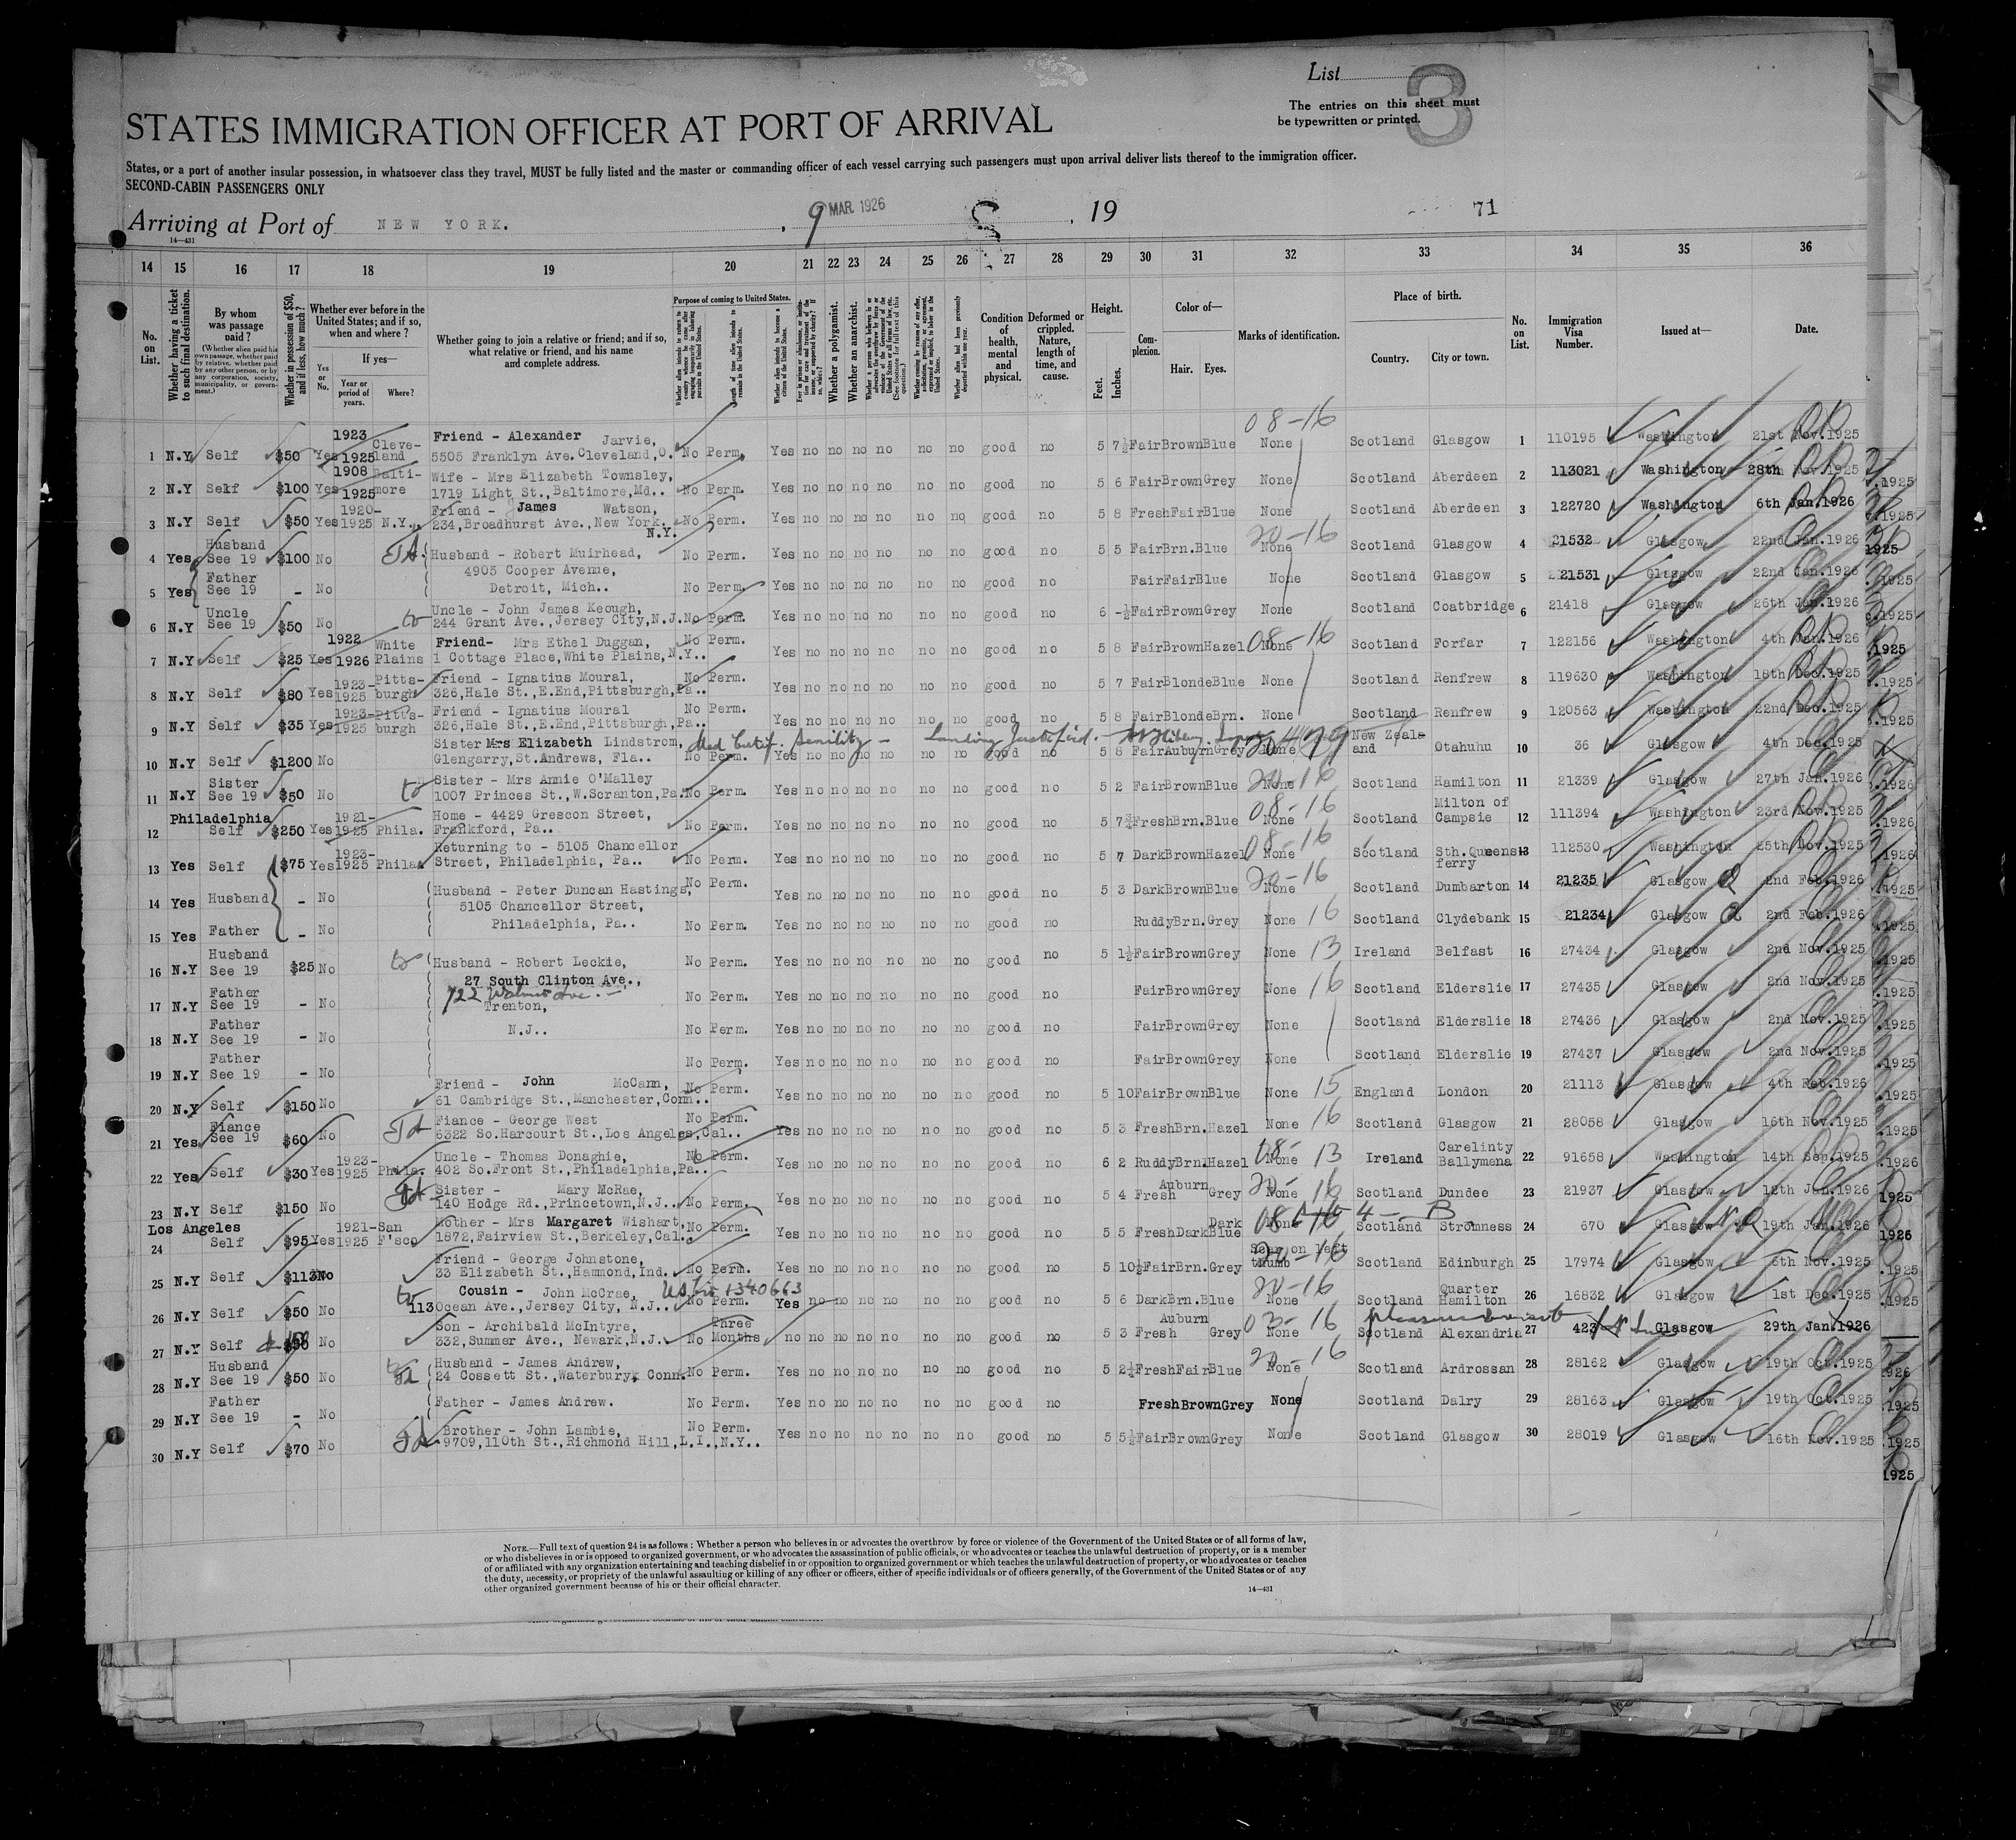 List 3
The entries on this sheet must
be typewritten or printed.
STATES IMMIGRATION OFFICER AT PORT OF ARRIVAL
States, or a port of another insular possession, in whatsoever class they travel, MUST be fully listed and the master or commanding officer of each vessel carrying such passengers must upon arrival deliver lists thereof to the immigration officer.
SECOND-CABIN PASSENGERS ONLY
Arriving at Port of NEW YORK. , 9 MAR. 1926 , 19 71
14—431
14 15 16 17 18 19 20 21 22 23 24 25 26 27 28 29 30 31 32 33 34 35 36
No. on List.
Whether having a ticket to such final destination.
By whom was passage paid?
(Whether alien paid his own passage, whether paid by relative, whether paid by any other person, or by any corporation, society, municipality, or government.)
Whether in possession of $50, and if less, how much?
Whether ever before in the United States; and if so, when and where?
Yes or No.
If yes—
Year or period of years.
Where?
Whether going to join a relative or friend; and if so, what relative or friend, and his name and complete address.
Purpose of coming to United States.
Whether a polygamist.
Whether an anarchist.
Condition of health, mental and physical.
Deformed or crippled. Nature, length of time, and cause.
Height.
Feet. Inches.
Complexion.
Color of—
Hair. Eyes.
Marks of identification.
Place of birth.
Country. City or town.
No. on List.
Immigration Visa Number.
Issued at—
Date.
1 N.Y Self $50 Yes 1923 1925 Cleveland Friend - Alexander Jarvie, 5505 Franklyn Ave. Cleveland, O. No Perm. Yes no no no no no good no 5 7½ Fair Brown Blue 08-16 None Scotland Glasgow 1 110195 Washington 21st Nov. 1925
2 N.Y Self $100 Yes 1908 1925 Baltimore Wife - Mrs Elizabeth Townsley, 1719 Light St., Baltimore, Md.. No Perm. Yes no no no no no good no 5 6 Fair Brown Grey None Scotland Aberdeen 2 113021 Washington 28th Nov. 1925
3 N.Y Self $50 Yes 1920-1925 N.Y. Friend - James Watson, 234, Broadhurst Ave., New York. N.Y. No Perm. Yes no no no no no good no 5 8 Fresh Fair Blue None Scotland Aberdeen 3 122720 Washington 6th Jan. 1926
4 Yes Husband See 19 $100 No Husband - Robert Muirhead, 4905 Cooper Avenue, No Perm. Yes no no no no no good no 5 5 Fair Brn. Blue 20-16 None Scotland Glasgow 4 21532 Glasgow 22nd Jan. 1926
5 Yes Father See 19 - No Detroit, Mich.. No Perm. Yes no no no no no good no Fair Fair Blue None Scotland Glasgow 5 21531 Glasgow 22nd Jan. 1926
6 N.Y Uncle See 19 $50 No Uncle - John James Keough, 244 Grant Ave., Jersey City, N.J. No Perm. Yes no no no no no good no 6 -½ Fair Brown Grey None Scotland Coatbridge 6 21418 Glasgow 26th Jan. 1926
7 N.Y Self $25 Yes 1922 1926 White Plains Friend- Mrs Ethel Duggan, 1 Cottage Place, White Plains, N.Y.. No Perm. Yes no no no no no good no 5 8 Fair Brown Hazel 08-16 None Scotland Forfar 7 122156 Washington 4th Jan. 1926
8 N.Y Self $80 Yes 1923-1925 Pittsburgh Friend - Ignatius Moural, 326, Hale St., E.End, Pittsburgh, Pa.. No Perm. Yes no no no no no good no 5 7 Fair Blonde Blue None Scotland Renfrew 8 119630 Washington 18th Dec. 1925
9 N.Y Self $35 Yes 1923-1925 Pittsburgh Friend - Ignatius Moural 326, Hale St., E.End, Pittsburgh, Pa.. No Perm. Yes no no no no no good no 5 8 Fair Blonde Brn. None Scotland Renfrew 9 120563 Washington 22nd Dec. 1925
Med Certif. Senility - Landing Justified.
10 N.Y Self $1200 No Sister Mrs Elizabeth Lindstrom, Glengarry, St. Andrews, Fla.. No Perm. Yes no no no no no good no 5 8 Fair Auburn Grey None New Zealand Otahuhu 10 36 Glasgow 4th Dec. 1925
11 N.Y Sister See 19 $50 No Sister - Mrs Annie O'Malley 1007 Princes St., W.Scranton, Pa. No Perm. Yes no no no no no good no 5 2 Fair Brown Blue 20-16 None Scotland Hamilton 11 21339 Glasgow 27th Jan. 1926
12 Philadelphia Self $250 Yes 1921-1925 Phila. Home - 4429 Grescon Street, Frankford, Pa.. No Perm. Yes no no no no no good no 5 7¾ Fresh Brn. Blue 08-16 None Scotland Milton of Campsie 12 111394 Washington 23rd Nov. 1925
13 Yes Self $75 Yes 1923-1925 Phila. Returning to - 5105 Chancellor Street, Philadelphia, Pa.. No Perm. Yes no no no no no good no 5 7 Dark Brown Hazel 08-16 None Scotland Sth. Queensferry 13 112530 Washington 25th Nov. 1925
14 Yes Husband - No Husband - Peter Duncan Hastings, 5105 Chancellor Street, No Perm. Yes no no no no no good no 5 3 Dark Brown Blue 20-16 None Scotland Dumbarton 14 21235 Glasgow 2nd Feb. 1926
15 Yes Father - No Philadelphia, Pa.. No Perm. Yes no no no no no good no Ruddy Brn. Grey None 16 Scotland Clydebank 15 21234 Glasgow 2nd Feb. 1926
16 N.Y Husband See 19 $25 No Husband - Robert Leckie, No Perm. Yes no no no no no good no 5 1½ Fair Brown Grey None 13 Ireland Belfast 16 27434 Glasgow 2nd Nov. 1925
17 N.Y Father See 19 - No 27 South Clinton Ave., 722 Walnut Ave. Trenton, No Perm. Yes no no no no no good no Fair Brown Grey None 16 Scotland Elderslie 17 27435 Glasgow 2nd Nov. 1925
18 N.Y Father See 19 - No N.J.. No Perm. Yes no no no no no good no Fair Brown Grey None Scotland Elderslie 18 27436 Glasgow 2nd Nov. 1925
19 N.Y Father See 19 - No No Perm. Yes no no no no no good no Fair Brown Grey None Scotland Elderslie 19 27437 Glasgow 2nd Nov. 1925
20 N.Y Self $150 No Friend - John McCann, 61 Cambridge St., Manchester, Conn.. No Perm. Yes no no no no no good no 5 10 Fair Brown Blue None 15 England London 20 21113 Glasgow 4th Feb. 1926
21 Yes Fiance See 19 $60 No Fiance - George West 6322 So. Harcourt St., Los Angeles, Cal.. No Perm. Yes no no no no no good no 5 3 Fresh Brn. Hazel None 16 Scotland Glasgow 21 28058 Glasgow 16th Nov. 1925
22 Yes Self $30 Yes 1923-1925 Phila. Uncle - Thomas Donaghie, 402 So. Front St., Philadelphia, Pa.. No Perm. Yes no no no no no good no 6 2 Ruddy Brn. Hazel 08- None 13 Ireland Carelinty Ballymena 22 91658 Washington 14th Sep. 1925
23 N.Y Self $150 No Sister - Mary McRae, 140 Hodge Rd., Princetown, N.J.. No Perm. Yes no no no no no good no 5 4 Fresh Auburn Grey 20- None 16 Scotland Dundee 23 21937 Glasgow 12th Jan. 1926
24 Los Angeles Self $95 Yes 1921-1925 San F'sco Mother - Mrs Margaret Wishart, 1872, Fairview St., Berkeley, Cal.. No Perm. Yes no no no no no good no 5 5 Fresh Dark Dark Blue None 4 - B Scotland Stromness 24 670 Glasgow 19th Jan. 1926
25 N.Y Self $113 No Friend - George Johnstone, 33 Elizabeth St., Hammond, Ind.. No Perm. Yes no no no no no good no 5 10½ Fair Brn. Grey Scar on left thumb 20-16 Scotland Edinburgh 25 17974 Glasgow 6th Nov. 1925
26 N.Y Self $50 No Cousin - John McCrae, 113 Ocean Ave., Jersey City, N.J.. No Perm. Yes no no no no no good no 5 6 Dark Brn. Blue 20-16 None Scotland Quarter Hamilton 26 16832 Glasgow 1st Dec. 1925
27 N.Y Self No Son - Archibald McIntyre, 332, Summer Ave., Newark, N.J.. No Three Months no no no no no no good no 5 3 Fresh Auburn Grey 03-16 None Scotland Alexandria 27 423 Glasgow 29th Jan. 1926
28 N.Y Husband See 19 $50 No Husband - James Andrew, 24 Cossett St., Waterbury, Conn. No Perm. Yes no no no no no good no 5 2½ Fresh Fair Blue 20-16 None Scotland Ardrossan 28 28162 Glasgow 19th Oct. 1925
29 N.Y Father See 19 - No Father - James Andrew. No Perm. Yes no no no no no good no Fresh Brown Grey None Scotland Dalry 29 28163 Glasgow 19th Oct. 1925
30 N.Y Self $70 No Brother - John Lambie, 9709, 110th St., Richmond Hill, L.I., N.Y.. No Perm. Yes no no no no no no good no 5 5½ Fair Brown Grey None Scotland Glasgow 30 28019 Glasgow 16th Nov. 1925
NOTE.—Full text of question 24 is as follows: Whether a person who believes in or advocates the overthrow by force or violence of the Government of the United States or of all forms of law,
or who disbelieves in or is opposed to organized government, or who advocates the assassination of public officials, or who advocates or teaches the unlawful destruction of property, or is a member
of or affiliated with any organization entertaining and teaching disbelief in or opposition to organized government or which teaches the unlawful destruction of property, or who advocates or teaches
the duty, necessity, or propriety of the unlawful assaulting or killing of any officer or officers, either of specific individuals or of officers generally, of the Government of the United States or of any
other organized government because of his or their official character.
14—431